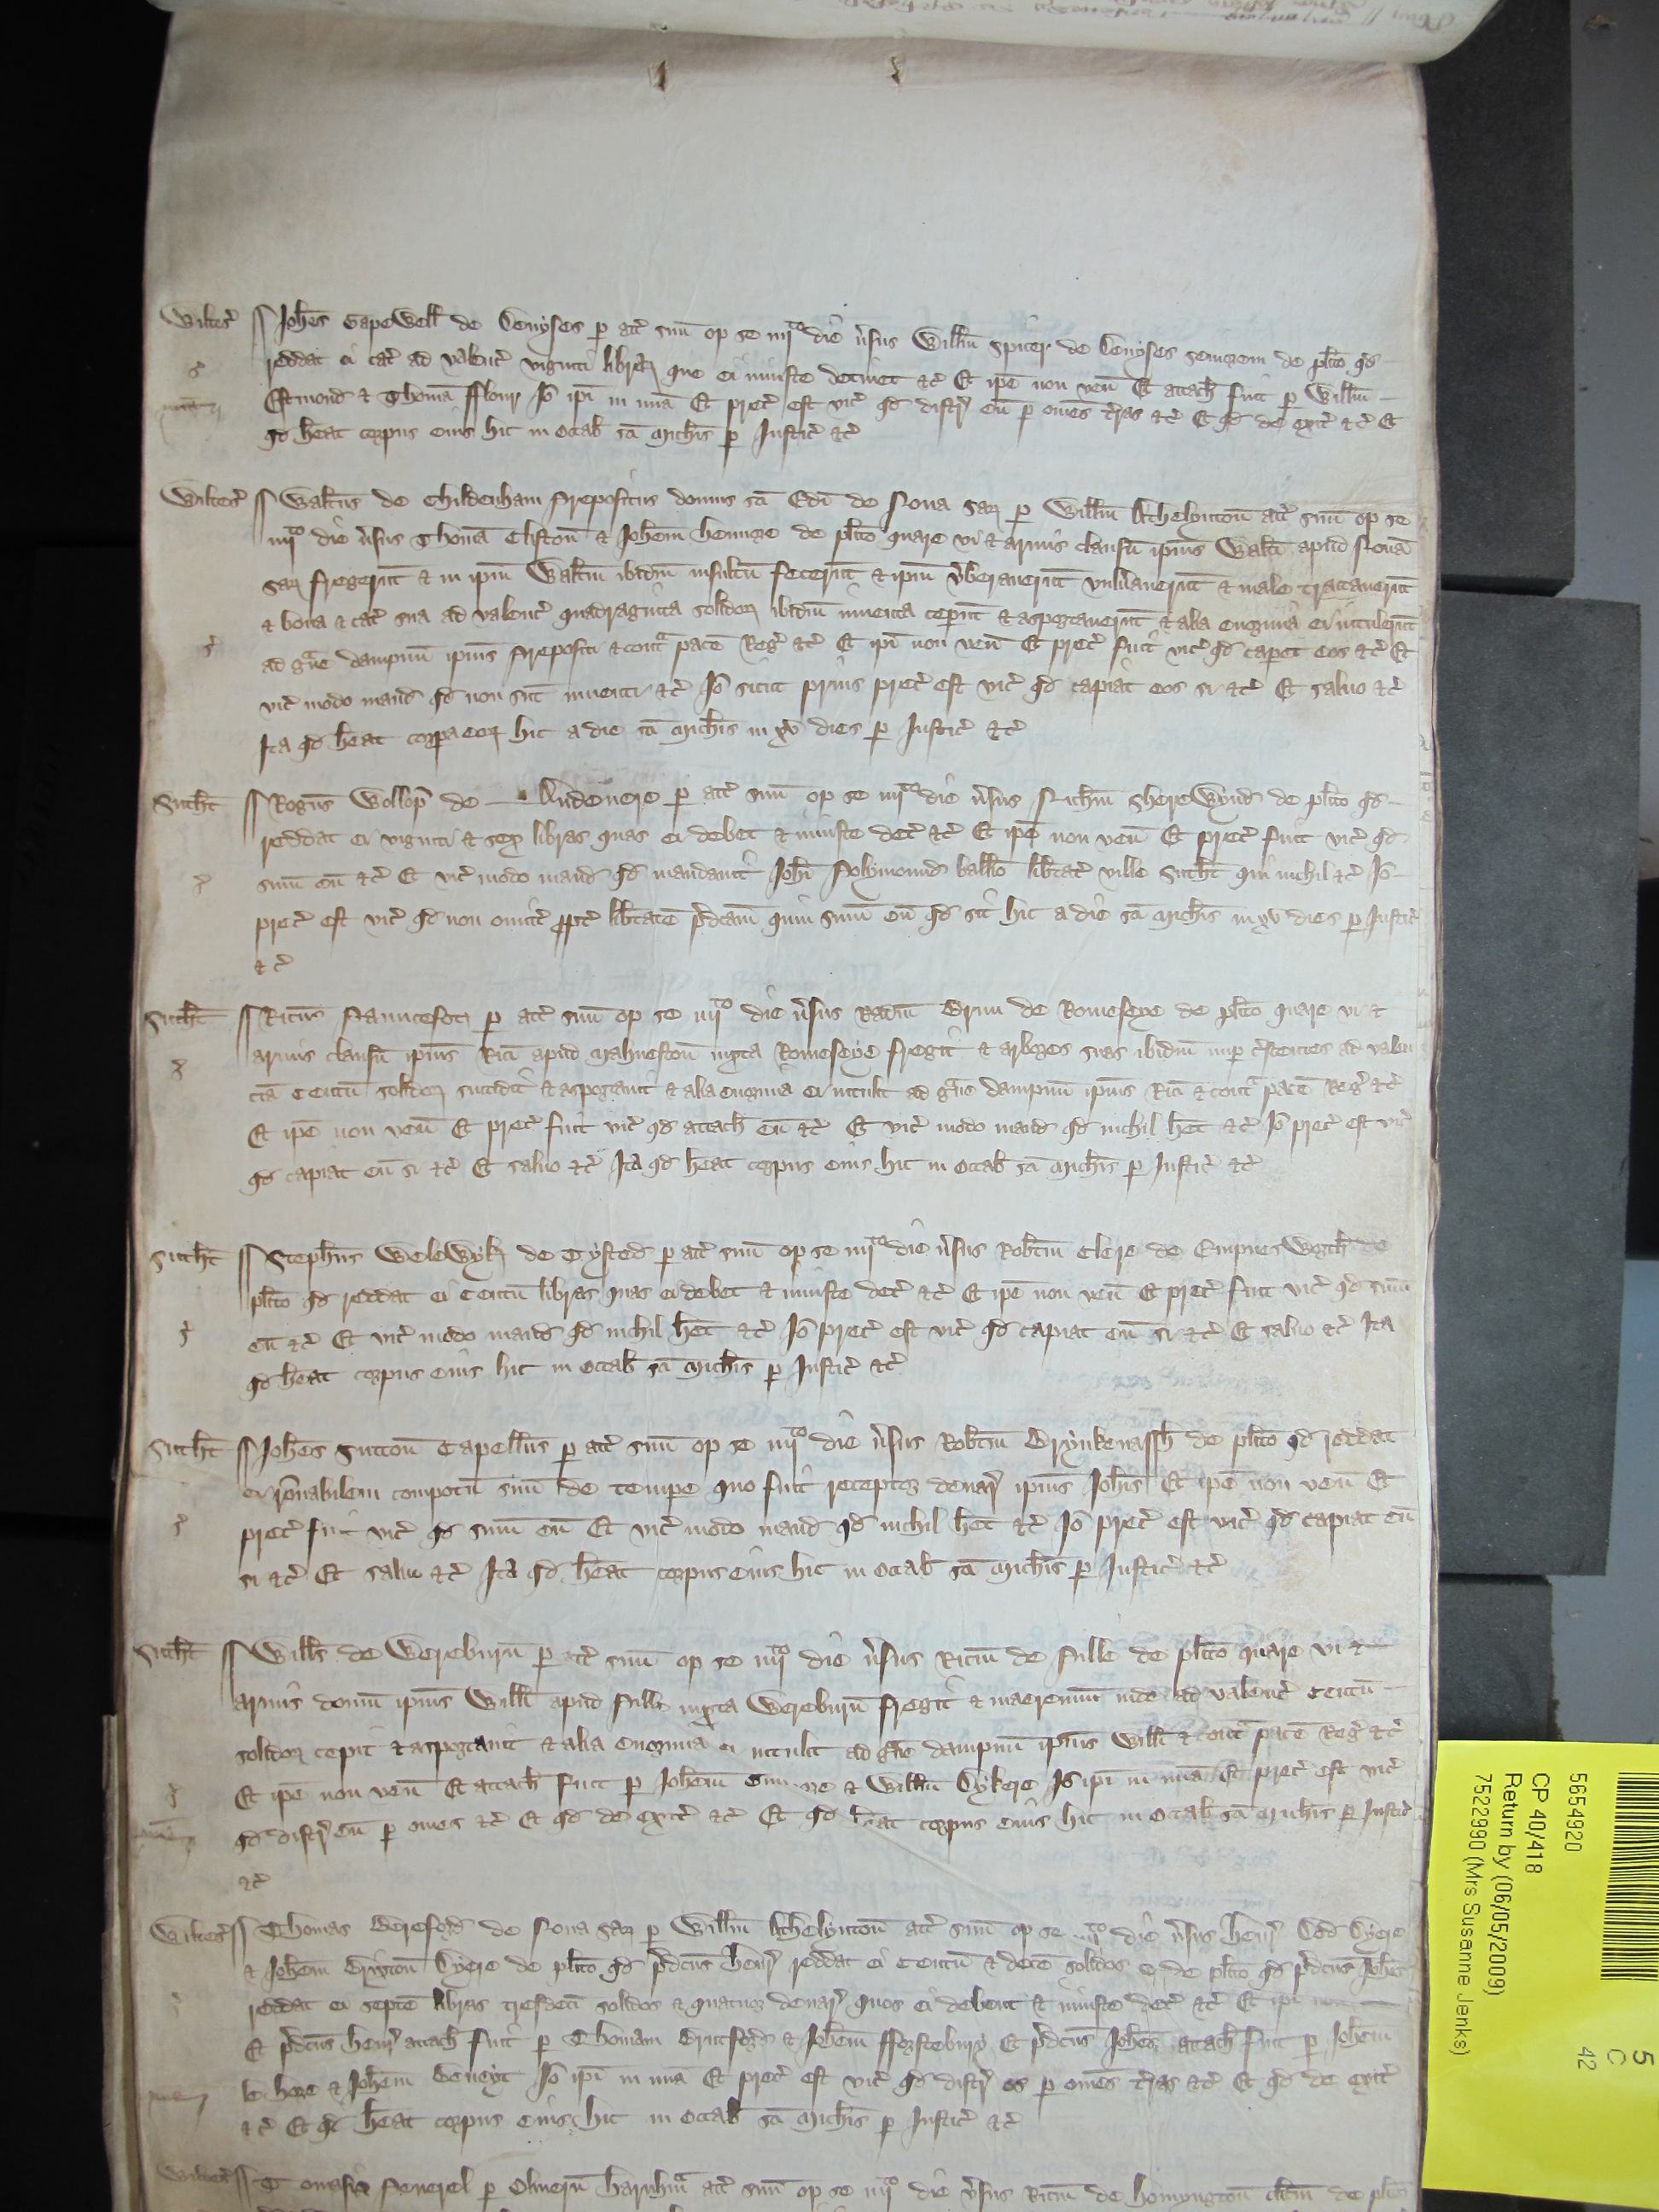 Wiltes' Joh̄es Gapewell de Devyses p̱ att' suū op̱ se iiijto die v̓sus Will̄m Spicer de Devyses seniorem de pl̄ito qd
reddat ei cat̓ ad valenc̓ viginti librar̓ que ei iniuste detinet &c̓ Et ip̄e non ven̄ Et attach fuit p̱ Will̄m
Estmond & Thomā fflour Iō ip̄i in mīa Et prec̓ est vic̓ qd distr̓ eū p̱ om̄es t̓ras &c̓ Et qd de exit̓ &c̓ Et
qd h̄eat corpus eius hic in Octab̄ sc̄i Mich̄is p̱ Justic̓ &c̓
Wiltes' Walt̄us de Childenham prepositus domus sc̄i Edi de Noua Sar̓ p̱ Will̄m Athelyngton̄ att' suū op̱ se
iiijto die v̓sus Thomā Clifton̄ & Joh̄em de pl̄ito quare vi & armis clausū ip̄ius Walt̄i apud Nouā
Sar̓ fregerūt & in ip̄m Walt̄um ibid̄m insultū fecerūt & ip̄m v̓berauerūt vuln̄auerūt & male tractauerūt
& bona & cat̓ sua ad valenc̓ quadraginta solidor̓ ibid̄m inuenta ceperūt & asportauerūt & alia enormia ei intulerūt
ad g̓ue dampnū ip̄ius prepositi & cont̓ pacē Reg̓ &c̓ Et ip̄i non ven̄ Et prec̓ fuit vic̓ qd caperet eos &c̓ Et
vic̓ modo mand̄ qd non sūt inuenti &c̓ Iō sicut prius prec̓ est vic̓ qd capiat eos si &c̓ Et saluo &c̓
Ita qd h̄eat corpora eor̓ hic a die sc̄i Mich̄is in xv dies p̱ Justic̓ &c̓
Suth̄t Rog̓us Wollop̄ de Andeuere p̱ att' suū op̱ se iiijto die v̓sus Nich̄m Sherewynd de pl̄ito qd
reddat ei viginti & sex libras quas ei debet & iniuste det̓ &c̓ Et ip̄e non ven̄ Et prec̓ fuit vic̓ qd
sum̄ eū &c̓ Et vic̓ modo mand̄ qd mandauit Joh̄i Polymound ball̄o lib̄tat̓ ville Suth̄t qui nichil &c̓ Iō
prec̓ est vic̓ qd non omitt̓ ppt̓ lib̄tatē p̓dc̄am quin sum̄ eū qd sit hic a die sc̄i Mich̄is in xv dies p̱ Justic̓
&c̓
Suth̄t Ric̄us Pauncefot p̱ att' suū op̱ se iiijto die v̓sus Rad̄m de Romeseye de pl̄ito quare vi &
armis clausū ip̄ius Ric̄i apud iuxta Romeseye fregit & arbores suas ibid̄m nup̱ c̓scentes ad valen
ciā Centū solidor̓ succidit & asportauit & alia enormia ei intulit ad g̓ue dampnū ip̄ius Ric̄i & cont̓ pacē Reg̓ &c̓
Et ip̄e non ven̄ Et prec̓ fuit vic̓ qd attach eū &c̓ Et vic̓ modo mand̄ qd nichil h̄et &c̓ Iō prec̓ est vic̓
qd capiat eū si &c̓ Et saluo &c̓ Ita qd h̄eat corpus eius hic in Octab̄ sc̄i Mich̄is p̱ Justic̓ &c̓
Suth̄t Steph̄us Welewyk de Tysted p̱ att' suū op̱ se iiijto die v̓sus Rob̄tum Clere de Empnesworth de
pl̄ito qd reddat ei Centū libras quas ei debet & iniuste det̓ &c̓ Et ip̄e non ven̄ Et prec̓ fuit vic̓ qd sum̄
eū &c̓ Et vic̓ modo mand̄ qd nichil h̄et &c̓ Iō prec̓ est vic̓ qd capiat eū si &c̓ Et saluo &c̓ Ita
qd h̄eat corpus eius hic in Octab̄ sc̄i Mich̄is p̱ Justic̓ &c̓
Suth̄t Joh̄es Sutton̄ Capell̄us p̱ att' suū op̱ se iiijto die v̓sus Rob̄tum Drynkenassh de pl̄ito qd reddat
ei r̄onabilem compotū suū de tempe quo fuit receptor denar̓ ip̄ius Joh̄is Et ip̄e non ven̄ Et
prec̓ fuit vic̓ qd sum̄ eū Et vic̓ modo mand̄ qd nichil h̄et &c̓ Iō prec̓ est vic̓ qd capiat eū
si &c̓ Et saluo &c̓ Ita qd h̄eat corpus eius hic in Octab̄ sc̄i Mich̄is p̱ Justic̓ &c̓
Suth̄t Will̄s de Wereburn̄ p̱ att' suū op̱ se iiijto die v̓sus Ric̄um de Pulle de pl̄ito quare vi &
armis domū ip̄ius Will̄i apud Pulle iuxta Wereburn̄ fregit & maeremiū inde ad valenc̓ Centū
solidor̓ cepit & asportauit & alia enormia ei intulit ad g̓ue dampnū ip̄ius Will̄i & cont̓ pacē Reg̓ &c̓
Et ip̄e non ven̄ Et attach fuit p̱ Joh̄em & Will̄m Dykere Iō ip̄i in mīa Et prec̓ est vic̓
qd distr̓ eū p̱ om̄es &c̓ Et qd de exit̓ &c̓ Et qd h̄eat corpus eius hic in Octab̄ sc̄i Mich̄is p̱ Justic̓
&c̓
Wiltes' Thomas Bereford de Noua Sar̓ p̱ Will̄m Athelyngton̄ att' suū op̱ se iiijto die v̓sus Henr̓ Dyere
& Joh̄em Brixton̄ Dyere de pl̄ito qd p̓dc̄us Henr̓ reddat ei Centū & decē solidos & de pl̄ito qd p̓dc̄us Joh̄es
reddat ei septē libras tresdecī solidos & quatuor denar̓ quos ei debent & iniuste det̓ &c̓ Et ip̄i non
Et p̓dc̄us Henr̓ attach fuit p̱ Thomam Brutford & Joh̄em fforstebury Et p̓dc̄us Joh̄es attach fuit p̱ Joh̄em
& Joh̄em Beneyt Iō ip̄i in mīa Et prec̓ est vic̓ qd distr̓ eos p̱ om̄es t̓ras &c̓ Et qd de exit̓
&c̓ Et qd h̄eat corpus eius hic in Octab̄ sc̄i Mich̄is p̱ Justic̓ &c̓
Wiltes' Peuerel p̱ Oliuerū Harnham att' suū op̱ se iiijto die v̓sus Ric̄um de Homyngton̄ cl̄icum de pl̄ito
5654920
CP 40/418
Return by (06/05/2009)
7522990 (Mrs Susanne Jenks)
5
C
42